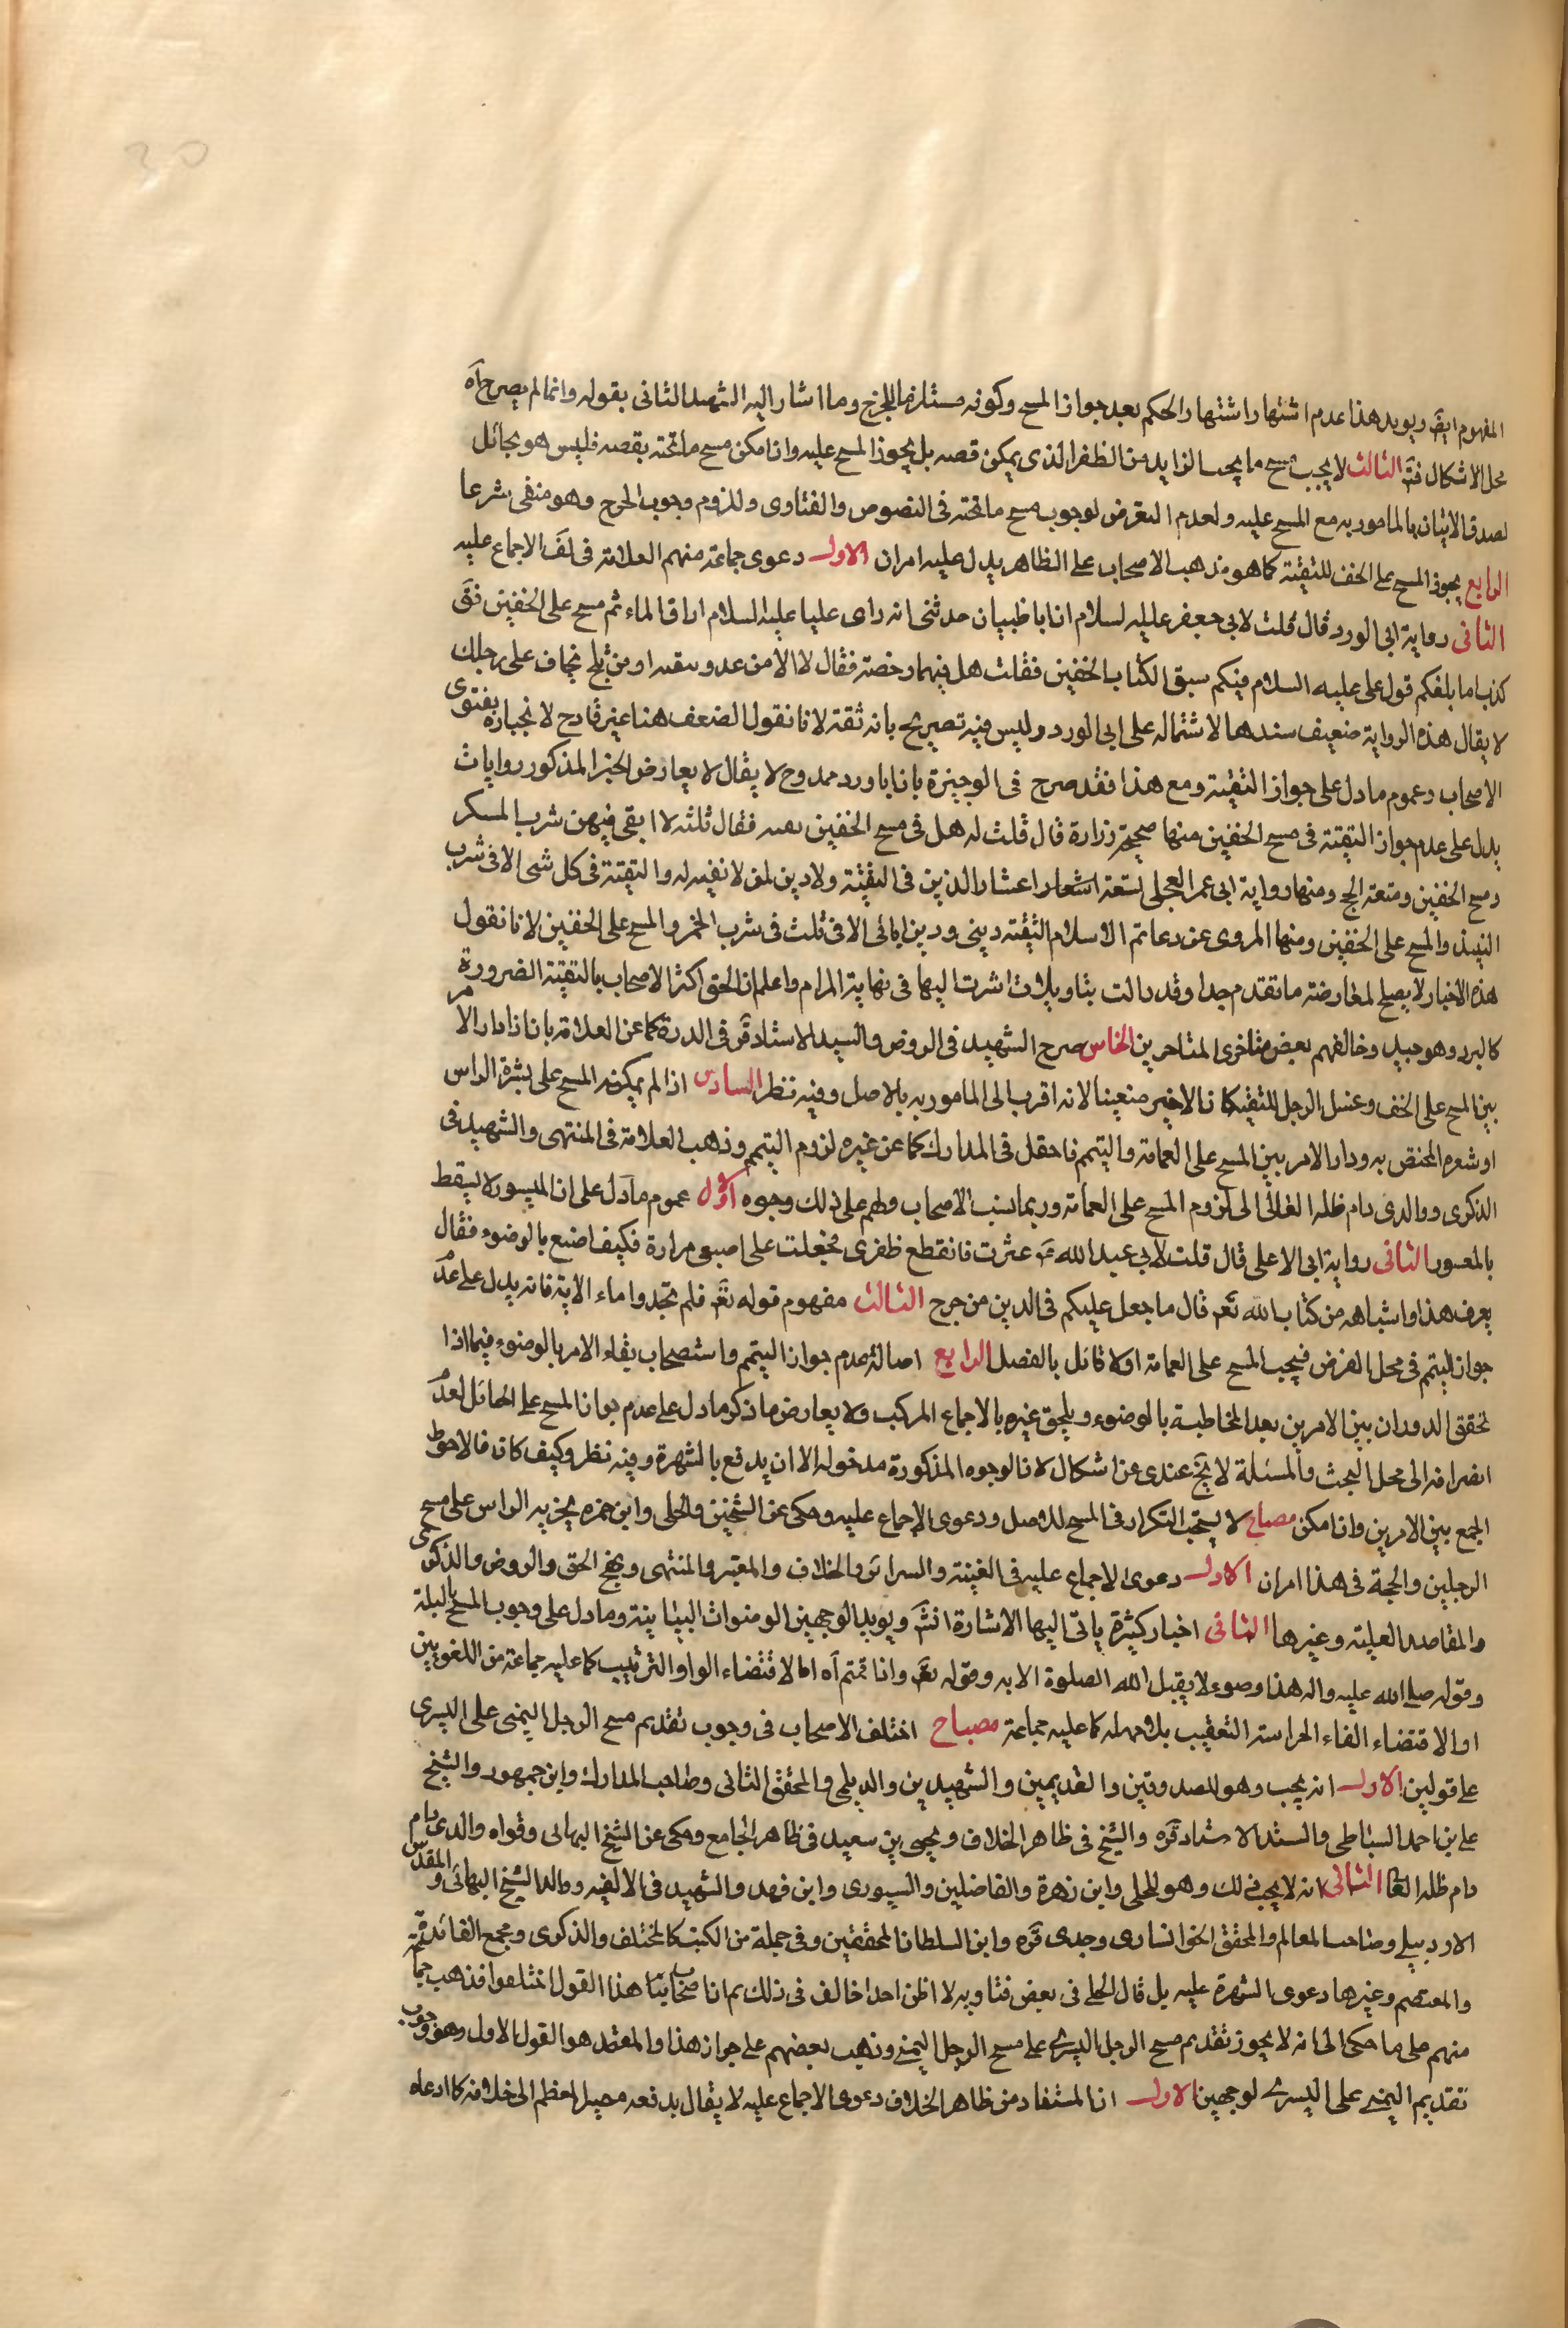 30
المفهوم ايض ويويد هذا عدم اشتهار اشتهار الحكم بعد جواز المسح وكونه مستلزما للحرج وما اشار اليه الشهيد الثانى بقوله وانما لم يصرح آه
محل الاشكال فتَه الثالث لا يجب مسح ما يجب الزايد من الظفر الذى يمكن قصه بل يجوز المسح عليه وان امكن مسح ما تحته بقصه فليس هو بحائل
لصدق الاتيان بالمامور به مع المسح عليه ولعدم التعرض لوجوب مسح ما تحته فى النصوص والفتاوى وللزوم وجوب الحرج وهو منفى شرعا
الرابع يجوز المسح على الخف للتقية كما هو مذهب الاصحاب على الظاهر يدل عليه امران الاول دعوى جماعة منهم العلامة فى لف الاجماع عليه
الثانى رواية ابى الورد قال قلت لابى جعفر عليه السلام ان ابا ظبيان حدثنى انه راى عليا عليه السلام اراق الماء ثم مسح على الخفين فقَ
كذب اما بلغكم قول على عليه السلام فيكم سبق الكتاب الخفين فقلت هل فيهما رخصة فقال لا الا من عدو تتقيه او من ثلج تخاف على رجليك
لا يقال هذه الرواية ضعيف سندها لاشتماله على ابى الورد وليس فيه تصريح بانه ثقة لانا نقول الضعف هنا غير قادح لانجباره بفتوى
الاصحاب وعموم ما دل على جواز التقية ومع هذا فقد صرح فى الوجيزة بان ابا ورد ممدوح لا يقال لا يعارض الخبر المذكور روايات
يدل على عدم جواز التقية فى مسح الخفين منها صحيحة زرارة قال قلت له هل فى مسح الخفين تقيه فقال ثلثه لا اتقى فيهن شرب المسكر
ومسح الخفين ومتعة الحج ومنها رواية ابى عمر العجلى تسعة اعشار الدين فى التقية ولا دين لمن لا تقيه له والتقية فى كل شى الا فى شرب
النبيذ والمسح على الخفين ومنها المروى عن دعائم الاسلام التقيه دينى ودين ابائى الا فى ثلث فى شرب الخمر والمسح على الخفين لانا نقول
هذه الاخبار لا يصلح لمعارضة ما تقدم جدا وقد اولت بتاويلات اشرت اليها فى نهاية المرام واعلم ان الحق اكثر الاصحاب بالتقية الضرورة
كالبرد وهو جيد وخالفهم بعض متاخرى المتاخرين الخامس صرح الشهيد فى الروض والسيد الاستاد قَه فى الدرة كما عن العلامة بان اذا دار الامر
بين المسح على الخف وغسل الرجل للتقيه كان الاخير متعينا لانه اقرب الى المامور به بالاصل وفيه نظر السادس اذا لم يمكنه المسح على بشرة الراس
او شعره المختص به ودار الامر بين المسح على العمامة والتيمم فاحتمل فى المدارك كما عن غيره لزوم التيمم وذهب العلامة فى المنتهى والشهيد فى
الذكرى ووالدى دام ظله العالى الى لزوم المسح على العمامة وربما ينسب الاصحاب ولهم على ذلك وجوه الاول عموم ما دل على ان الميسور لا يسقط
بالمعسور الثانى رواية ابى الاعلى قال قلت لابى عبد الله عَ عثرت فانقطع ظفرى فجعلت على اصبعى مرارة فكيف اصنع بالوضوء فقال
يعرف هذا واشباهه من كتاب الله تعَ قال ما جعل عليكم فى الدين من حرج الثالث مفهوم قوله تعَ فلم تجدوا ماء الاية فانه يدل على عدم
جواز التيمم فى محل الفرض فيجب المسح على العمامة اولا قائل بالفصل الرابع اصالة عدم جواز التيمم واستصحاب بقاء الامر بالوضوء فيما اذا
تحقق الدوران بين الامرين بعد المخاطبة بالوضوء ويلحق غيره بالاجماع المركب ولا يعارض ما ذكر ما دل على عدم جواز المسح على الحائل لعدم
انصرافه الى محل البحث والمسئلة لا تخَ عندى من اشكال لان الوجوه المذكورة مدخوله الا ان يدفع بالشهرة وفيه نظر وكيف كان فالاحوط
الجمع بين الامرين وان امكن مصباح لا يستحب التكرار فى المسح للاصل ودعوى الاجماع عليه وحكى عن الشيخين والحلى وابن حمزه يجزيه الراس على مسح
الرجلين والحجة فى هذا امران الاول دعوى الاجماع عليه فى الغنية والسرائر والخلاف والمعتبر والمنتهى ونهج الحق والروض والذكرى
والمقاصد العلية وغيرها الثانى اخبار كثيرة ياتى اليها الاشارة انشَ ويويد الوجهين الوضوات البيانية وما دل على وجوب المسح بالبلة
وقوله صلى الله عليه واله هذا وضوء لا يقبل الله الصلوة الا به وقوله تعَ واذا قمتم آه اما لاقتضاء الواو الترتيب كما عليه جماعة من اللغويين
او الاقتضاء الفاء الحراسة التعقيب بلا مهله كما عليه جماعة مصباح اختلف الاصحاب فى وجوب تقديم مسح الرجل اليمنى على اليسرى
على قولين الاول انه يجب وهو للصدوقين والقديمين والشهيدين والديلمى والمحقق الثانى وصاحب المدارك وابن جمهور والشيخ
على بن احمد السباطى والسيد الاستاد قَه والشيخ فى ظاهر الخلاف ويحيى بن سعيد فى ظاهر الجامع وحكى عن الشيخ البهائى وقواه والدى دام
دام ظله العَا الثانى انه لا يجب ذلك وهو للحلى وابن زهرة والفاضلين والسيورى وابن فهد والشهيد فى الالفيه ووالد الشيخ البهائى والمقدس
الاردبيلى وصاحب المعالم والمحقق الخوانسارى وجدى قَه وابن السلطان المحققين وفى جملة من الكتب كالمختلف والذكرى ومجمع الفائدة
والمعتصم وغيرها دعوى الشهرة عليه بل قال الحلى فى بعض فتاويه لا اظن احدا خالف فى ذلك ثم ان اصحاب هذا القول اختلفوا فذهب جماعة
منهم على ما حكى الى انه لا يجوز تقديم مسح الرجل اليسرى على مسح الرجل اليمنى وذهب بعضهم على جواز هذا والمعتمد هو القول الاول وهو وجوب
تقديم اليمنى على اليسرى لوجهين الاول ان المستفاد من ظاهر الخلاف دعوى الاجماع عليه لا يقال يدفعه مصير المعظم الى خلافه كما ادعاه